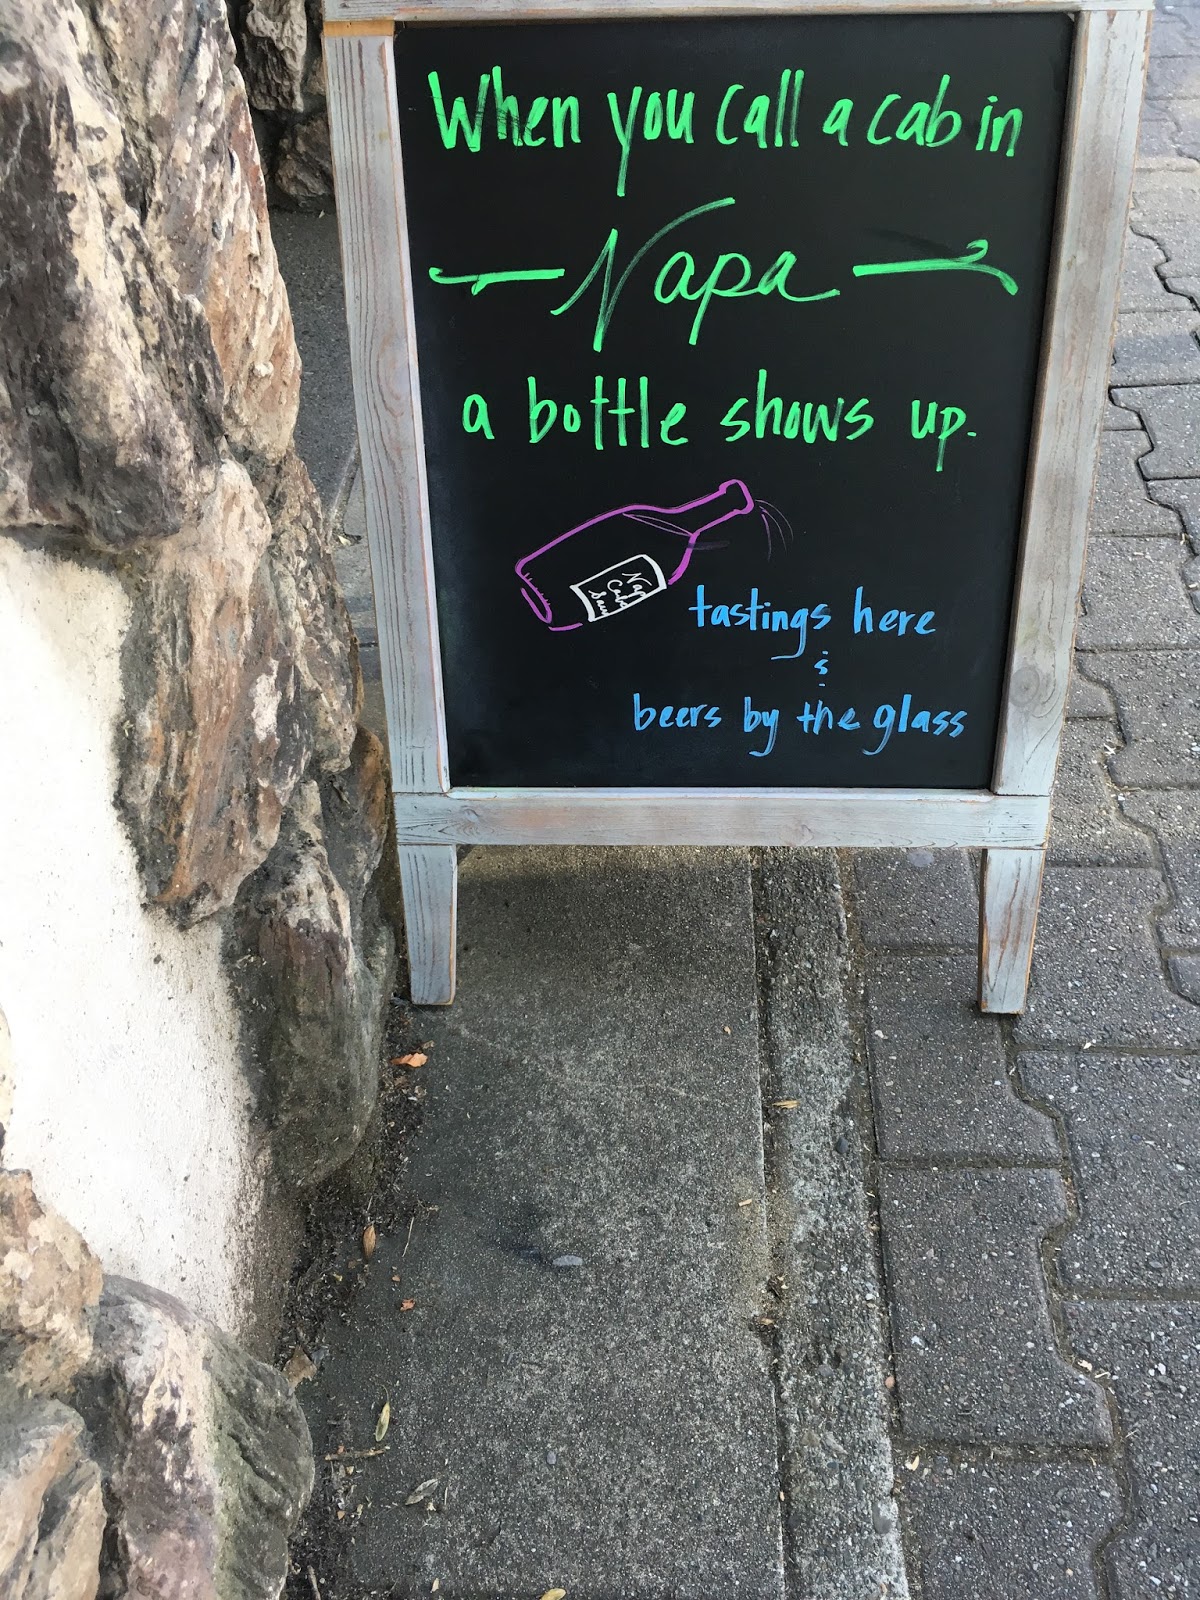 When you call a cab in
Napa
a bottle shows up.
Nap
Cab
Sauv
tastings here
&
beers by the glass